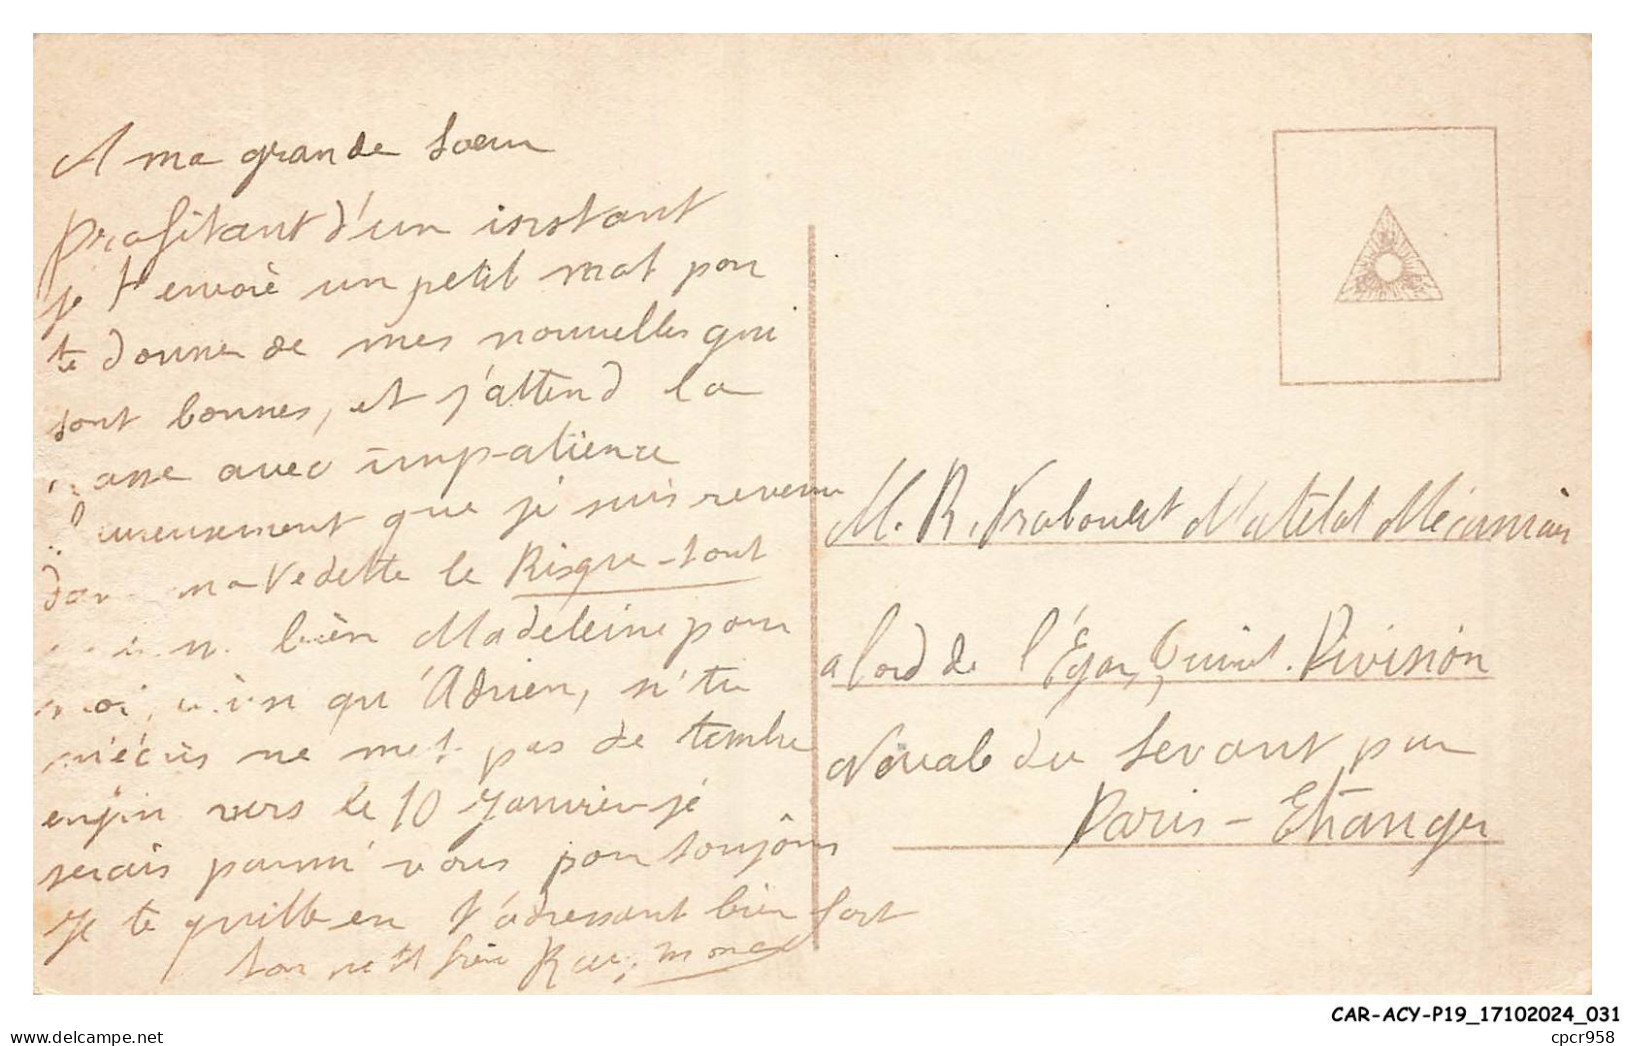 A ma grande soeur
profitant d'un instant
je t'envoie un petit mot pour
te donner de mes nouvelles qui
sont bonnes, et j'attend la
avec impatience
que je suis revenu
ma Vedette le Risque-tout
bien Madeleine pour
moi, qu'Adrien, si tu
m'écris ne met pas de timbre
enfin vers le 10 Janvier je
serais parmi vous pour toujours
Je te quitte en t'adressant bien fort
ton petit frère Raymond
M. R. Matelot Mécanicien
a bord de l' Division
Navale du Levant par
Paris - Etranger
CAR-ACY-P19_17102024_031
www.delcampe.net
cpcr958